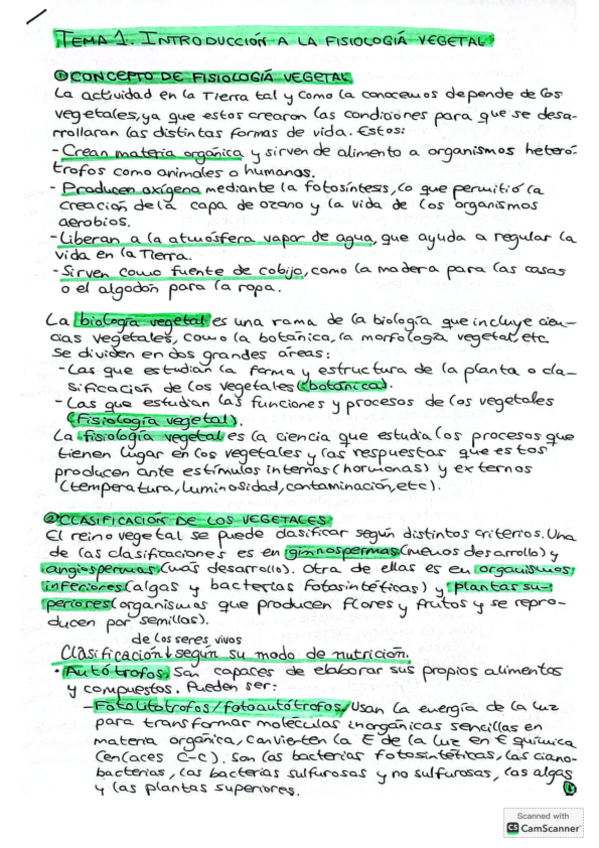 TEMA 1. INTRODUCCIÓN A LA FISIOLOGÍA VEGETAL
① CONCEPTO DE FISIOLOGÍA VEGETAL
La actividad en la Tierra tal y como la conocemos depende de los
vegetales, ya que estos crearon las condiciones para que se desa-
rrollaran las distintas formas de vida. Estos:
- Crean materia orgánica y sirven de alimento a organismos heteró-
trofos como animales o humanos.
- Producen oxígeno mediante la fotosíntesis, lo que permitió la
creación de la capa de ozono y la vida de los organismos
aerobios.
- Liberan a la atmósfera vapor de agua, que ayuda a regular la
vida en la Tierra.
- Sirven como fuente de cobijo, como la madera para las casas
o el algodón para la ropa.
La biología vegetal es una rama de la biología que incluye cien-
cias vegetales, como la botánica, la morfología vegetal, etc.
Se dividen en dos grandes áreas:
- Las que estudian la forma y estructura de la planta o cla-
sificación de los vegetales (botánica).
- Las que estudian las funciones y procesos de los vegetales
(Fisiología vegetal).
La fisiología vegetal es la ciencia que estudia los procesos que
tienen lugar en los vegetales y las respuestas que estos
producen ante estímulos internos (hormonas) y externos
(temperatura, luminosidad, contaminación, etc).
② CLASIFICACIÓN DE LOS VEGETALES
El reino vegetal se puede clasificar según distintos criterios. Una
de las clasificaciones es en gimnospermas (menos desarrollo) y
angiospermas (más desarrollo). Otra de ellas es en organismos
inferiores (algas y bacterias fotosintéticas) y plantas su-
periores (organismos que producen flores y frutos y se repro-
ducen por semillas).
de los seres vivos
Clasificación ↓ según su modo de nutrición.
• Autótrofos. Son capaces de elaborar sus propios alimentos
y compuestos. Pueden ser:
- Fotolitotrofos/fotoautótrofos. Usan la energía de la luz
para transformar moléculas inorgánicas sencillas en
materia orgánica, convierten la E de la luz en E química
(enlaces C-C). Son las bacterias fotosintéticas, las ciano-
bacterias, las bacterias sulfurosas y no sulfurosas, las algas
y las plantas superiores.
①
Scanned with
CS CamScanner